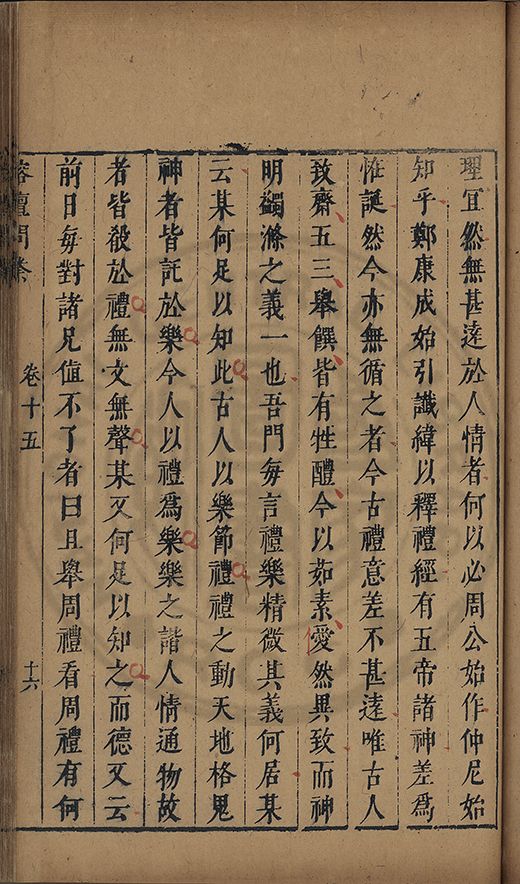 理宜然無甚遠於人情者何以必周公始作仲尼始
知乎鄭康成始引讖緯以釋禮經有五帝諸神差為
怪誕然今亦無循之者今古禮意差不甚遠唯古人
致齋五三舉饌皆有牲醴今以茹素愛然異致而神
明蠲滌之義一也吾門每言禮樂精微其義何居某
云某何足以知此古人以樂節禮禮之動天地格鬼
神者皆託於樂今人以禮爲樂樂之諧人情通物故
者皆殺於禮無文無聲某又何足以知之而德又云
前日每對諸兄值不了者曰且舉周禮看周禮有何
榕壇問業
卷十五
十六